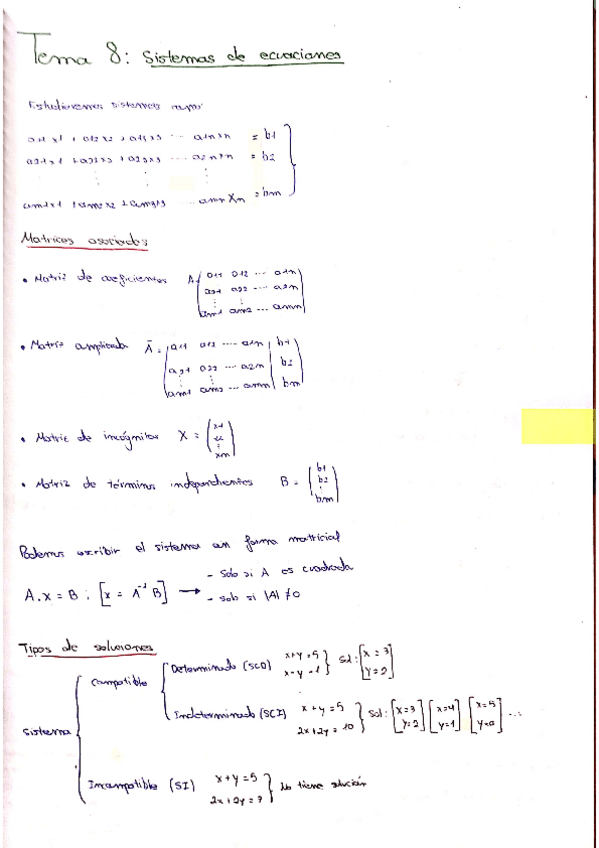 Tema 8: Sistemas de ecuaciones
Estudiaremos sistemas
a11x1 + a12x2 + a13x3 ... a1nxn = b1
a21x1 + a22x2 + a23x3 ... a2nxn = b2
⋮ ⋮ ⋮ ⋮
am1x1 + am2x2 + am3x3 ... amnxn = bm
Matrices asociadas
• Matriz de coeficientes A = (a11 a12 ... a1n
a21 a22 ... a2n
⋮ ⋮
am1 am2 ... amn)
• Matriz ampliada Ā = (a11 a12 ... a1n | b1
a21 a22 ... a2n | b2
⋮ ⋮
am1 am2 ... amn | bm)
• Matriz de incógnitas X = (x1
x2
⋮
xm)
• Matriz de términos independientes B = (b1
b2
⋮
bm)
Podemos escribir el sistema en forma matricial
A.x = B ; [x = A⁻¹ B] → - Solo si A es cuadrada
- solo si |A| ≠ 0
Tipos de soluciones
Sistema
Compatible
Determinado (SCD) x+y=5
x-y=1 } Sol: [x=3
y=2]
Indeterminado (SCI) x+y=5
2x+2y=10 } Sol: [x=3
y=2] [x=4
y=1] [x=5
y=0] ...
Incompatible (SI) x+y=5
2x+2y=7 } No tiene solución